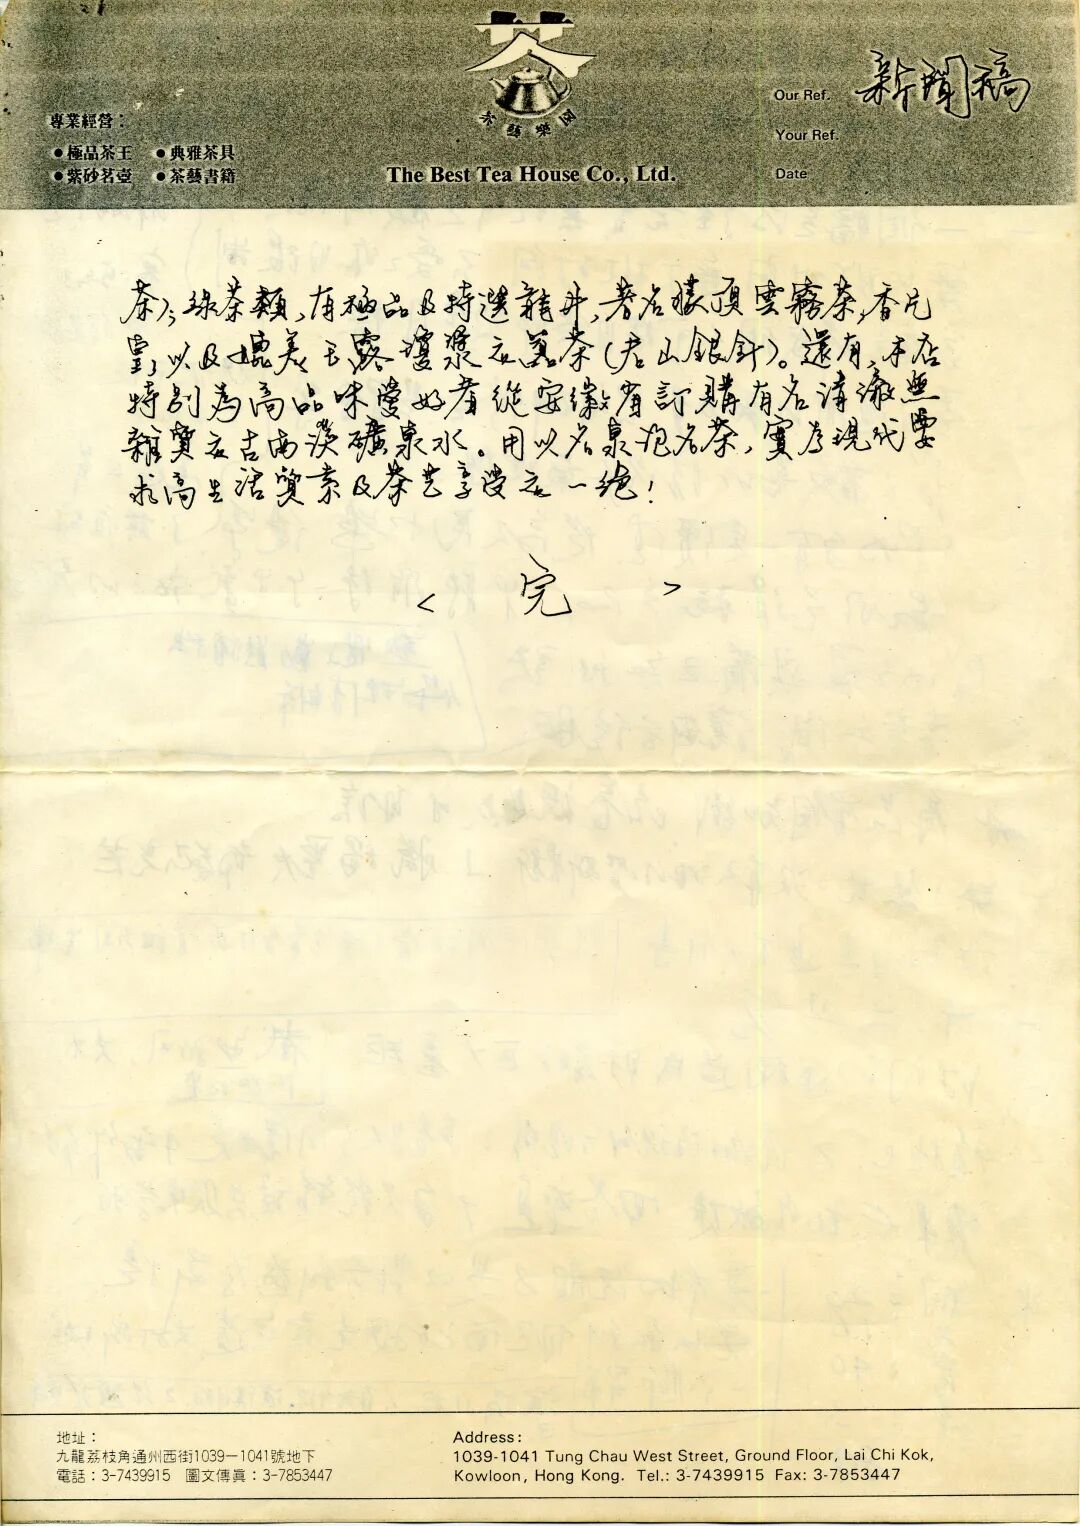 茶藝樂園
專業經營：
•極品茶王 •典雅茶具
•紫砂茗壺 •茶藝書籍
The Best Tea House Co., Ltd.
Our Ref. 新聞稿
Your Ref.
Date
茶)；綠茶類，有極品及特選龍井，著名猿頂雲霧茶，香片
等，以及媲美玉露瓊漿之茗茶(君山銀針)。還有，本店
特別為高品味愛好者從安徽省訂購有名清澈無
雜質之古南淡礦泉水。用以名泉泡名茶，實為現代要
求高生活質素及茶艺享受之一絶！
< 完 >
地址：
九龍荔枝角通州西街1039－1041號地下
電話：3-7439915 圖文傳真：3-7853447
Address:
1039-1041 Tung Chau West Street, Ground Floor, Lai Chi Kok,
Kowloon, Hong Kong. Tel.: 3-7439915 Fax: 3-7853447